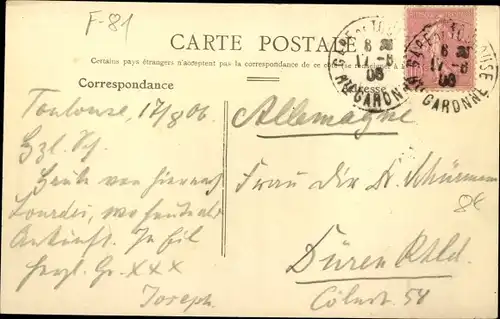 F-81
CARTE POSTALE
Certains pays étrangers n'acceptent pas la correspondance de ce côté
Correspondance
Adresse
GARE DE TOULOUSE
8
17-8
06
Hte GARONNE
Toulouse, 17/8 06.
Hzl.
Heute von hier nach
Lourdes, wo heute abd
Ankunft. In Eil
herzl. Gr. XXX
Joseph.
Allemagne
Frau Dir Dr. Schürmann
Düren Rhld.
Cölnstr. 54
8€